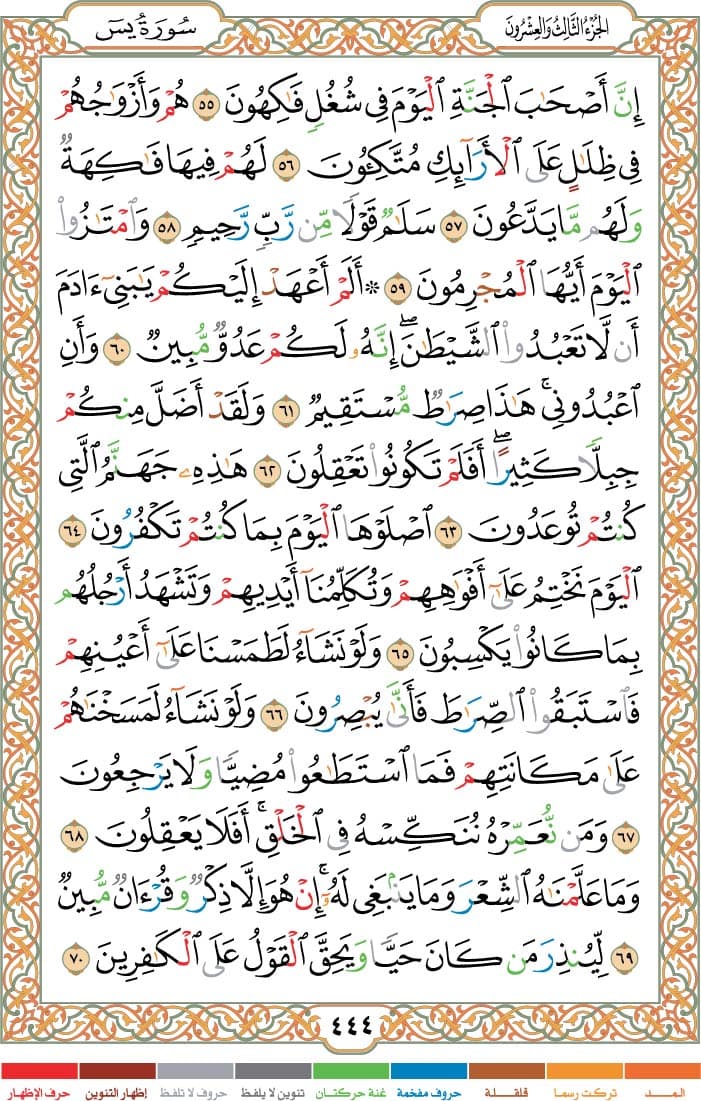 الجزء الثالث والعشرون
سورة يس
إِنَّ أَصْحَٰبَ ٱلْجَنَّةِ ٱلْيَوْمَ فِى شُغُلٍ فَٰكِهُونَ ٥٥ هُمْ وَأَزْوَٰجُهُمْ
فِى ظِلَٰلٍ عَلَى ٱلْأَرَآئِكِ مُتَّكِـُٔونَ ٥٦ لَهُمْ فِيهَا فَٰكِهَةٌ
وَلَهُم مَّا يَدَّعُونَ ٥٧ سَلَٰمٌ قَوْلًا مِّن رَّبٍّ رَّحِيمٍ ٥٨ وَٱمْتَٰزُوا۟
ٱلْيَوْمَ أَيُّهَا ٱلْمُجْرِمُونَ ٥٩ ۞ أَلَمْ أَعْهَدْ إِلَيْكُمْ يَٰبَنِىٓ ءَادَمَ
أَن لَّا تَعْبُدُوا۟ ٱلشَّيْطَٰنَ ۖ إِنَّهُۥ لَكُمْ عَدُوٌّ مُّبِينٌ ٦٠ وَأَنِ
ٱعْبُدُونِى ۚ هَٰذَا صِرَٰطٌ مُّسْتَقِيمٌ ٦١ وَلَقَدْ أَضَلَّ مِنكُمْ
جِبِلًّا كَثِيرًا ۖ أَفَلَمْ تَكُونُوا۟ تَعْقِلُونَ ٦٢ هَٰذِهِۦ جَهَنَّمُ ٱلَّتِى
كُنتُمْ تُوعَدُونَ ٦٣ ٱصْلَوْهَا ٱلْيَوْمَ بِمَا كُنتُمْ تَكْفُرُونَ ٦٤
ٱلْيَوْمَ نَخْتِمُ عَلَىٰٓ أَفْوَٰهِهِمْ وَتُكَلِّمُنَآ أَيْدِيهِمْ وَتَشْهَدُ أَرْجُلُهُم
بِمَا كَانُوا۟ يَكْسِبُونَ ٦٥ وَلَوْ نَشَآءُ لَطَمَسْنَا عَلَىٰٓ أَعْيُنِهِمْ
فَٱسْتَبَقُوا۟ ٱلصِّرَٰطَ فَأَنَّىٰ يُبْصِرُونَ ٦٦ وَلَوْ نَشَآءُ لَمَسَخْنَٰهُمْ
عَلَىٰ مَكَانَتِهِمْ فَمَا ٱسْتَطَٰعُوا۟ مُضِيًّا وَلَا يَرْجِعُونَ
٦٧ وَمَن نُّعَمِّرْهُ نُنَكِّسْهُ فِى ٱلْخَلْقِ ۖ أَفَلَا يَعْقِلُونَ ٦٨
وَمَا عَلَّمْنَٰهُ ٱلشِّعْرَ وَمَا يَنۢبَغِى لَهُۥٓ ۚ إِنْ هُوَ إِلَّا ذِكْرٌ وَقُرْءَانٌ مُّبِينٌ
٦٩ لِّيُنذِرَ مَن كَانَ حَيًّا وَيَحِقَّ ٱلْقَوْلُ عَلَى ٱلْكَٰفِرِينَ ٧٠
٤٤٤
المــد تركت رسما قلقلة حروف مفخمة غنة حركتان تنوين لا يلفظ حروف لا تلفظ إظهار التنوين حرف الإظهار